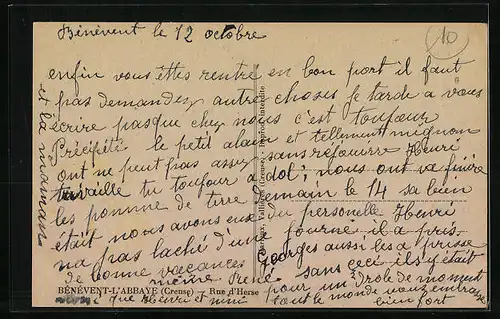 Bénévent le 12 octobre
10
enfin vous êttes rentré en bon port il faut
pas demandez autre choses je tarde a vous
écrire pasque chez nous c'est toufour
Précipité le petit alain et tellement mignon
ont ne peut pas assez sans réfouirre Henri
travaille tu toufour a dol; nous ont va finire
les pomme de terre demain le 14 sa bien
était nous avons eus du personelle Henri
na pas laché d'une journé il a pris
de bonne vacances Georges aussi les a prisse
meme René sans ceci ils y était
que Henri et mimi pour un drole de moment
tout le monde vous embrasse
bien fort
et la maman
BÉNÉVENT-L'ABBAYE (Creuse) — Rue d'Herse
(Creuse) - Reprod. interdite